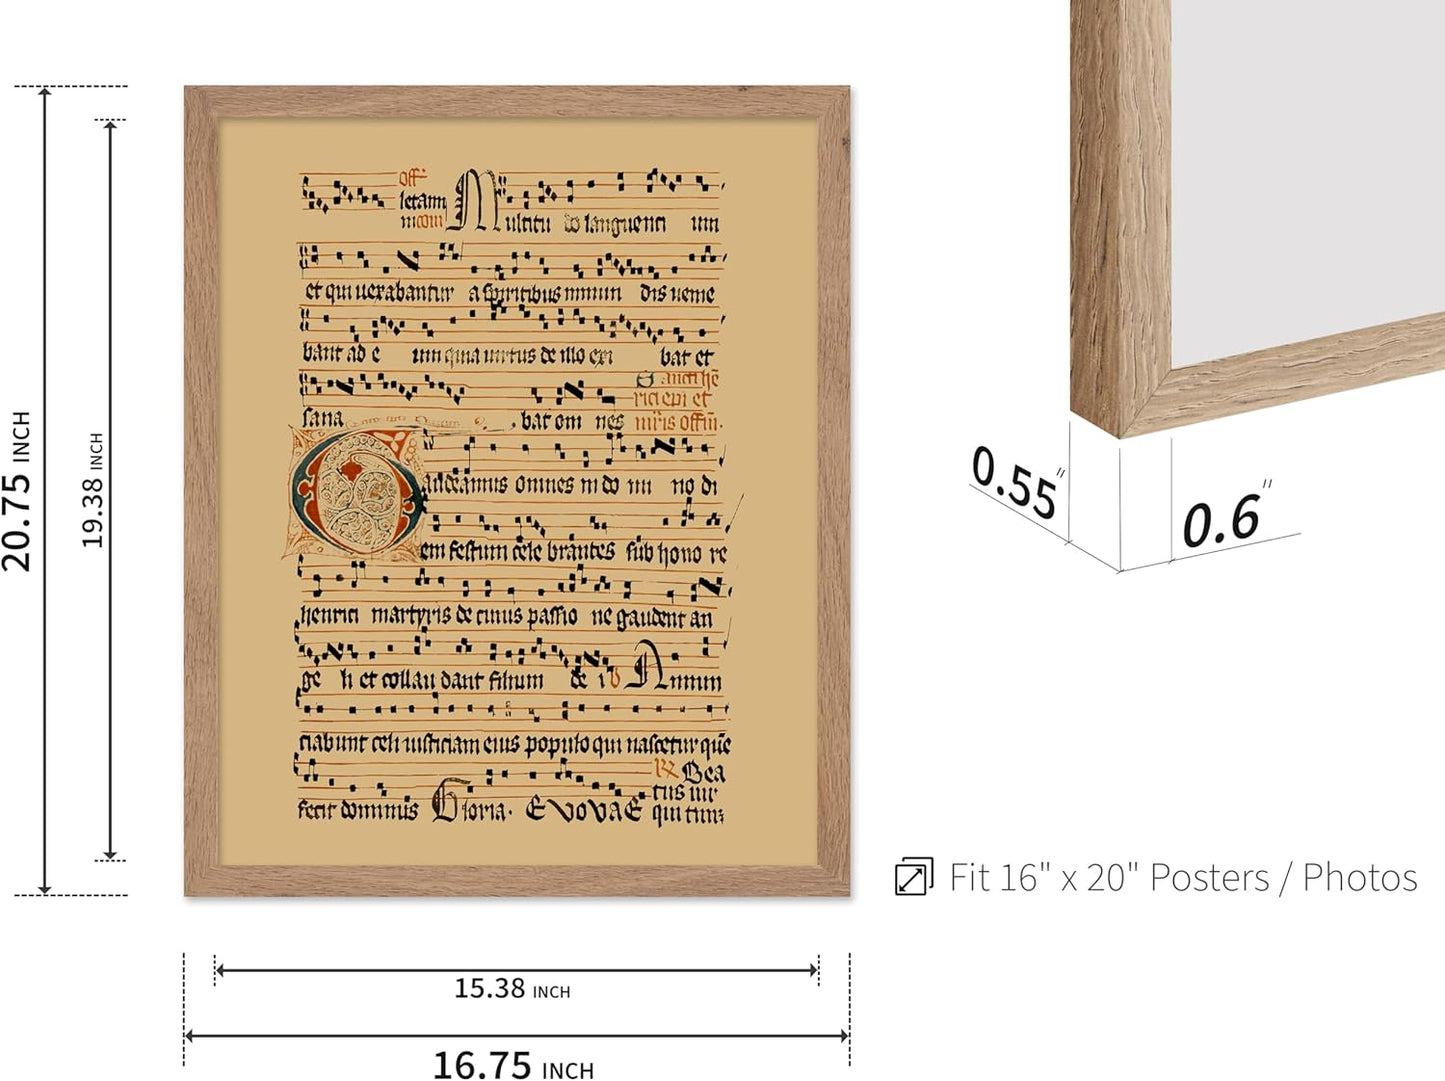 20.75 INCH
19.38 INCH
off
letam
Multitu do languenti um
et qui uexabantur a spiritibus inmun dis uenie
bant ad e um quia uirtus de illo exi bat et
sana bat om nes
audeamus omnes in do mi no di
em festum cele brantes sub hono re
henrici martyris de cuius passio ne gaudent an
ge li et collau dant filium de i Annun
ciabunt celi iusticiam eius populo qui nascetur quē
Bea
tus uir
fecit dominus Gloria. EVOVAE qui
15.38 INCH
16.75 INCH
0.55"
0.6"
Fit 16" x 20" Posters / Photos